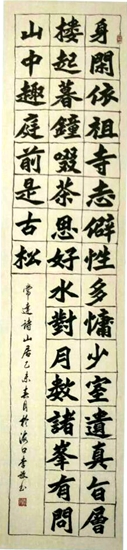 身閑依祖寺志僻性多慵少室遺真旨層
樓起暮鐘啜茶思好水對月數諸峯有問
山中趣庭前是古松
常達诗山居己未春月於海口李书